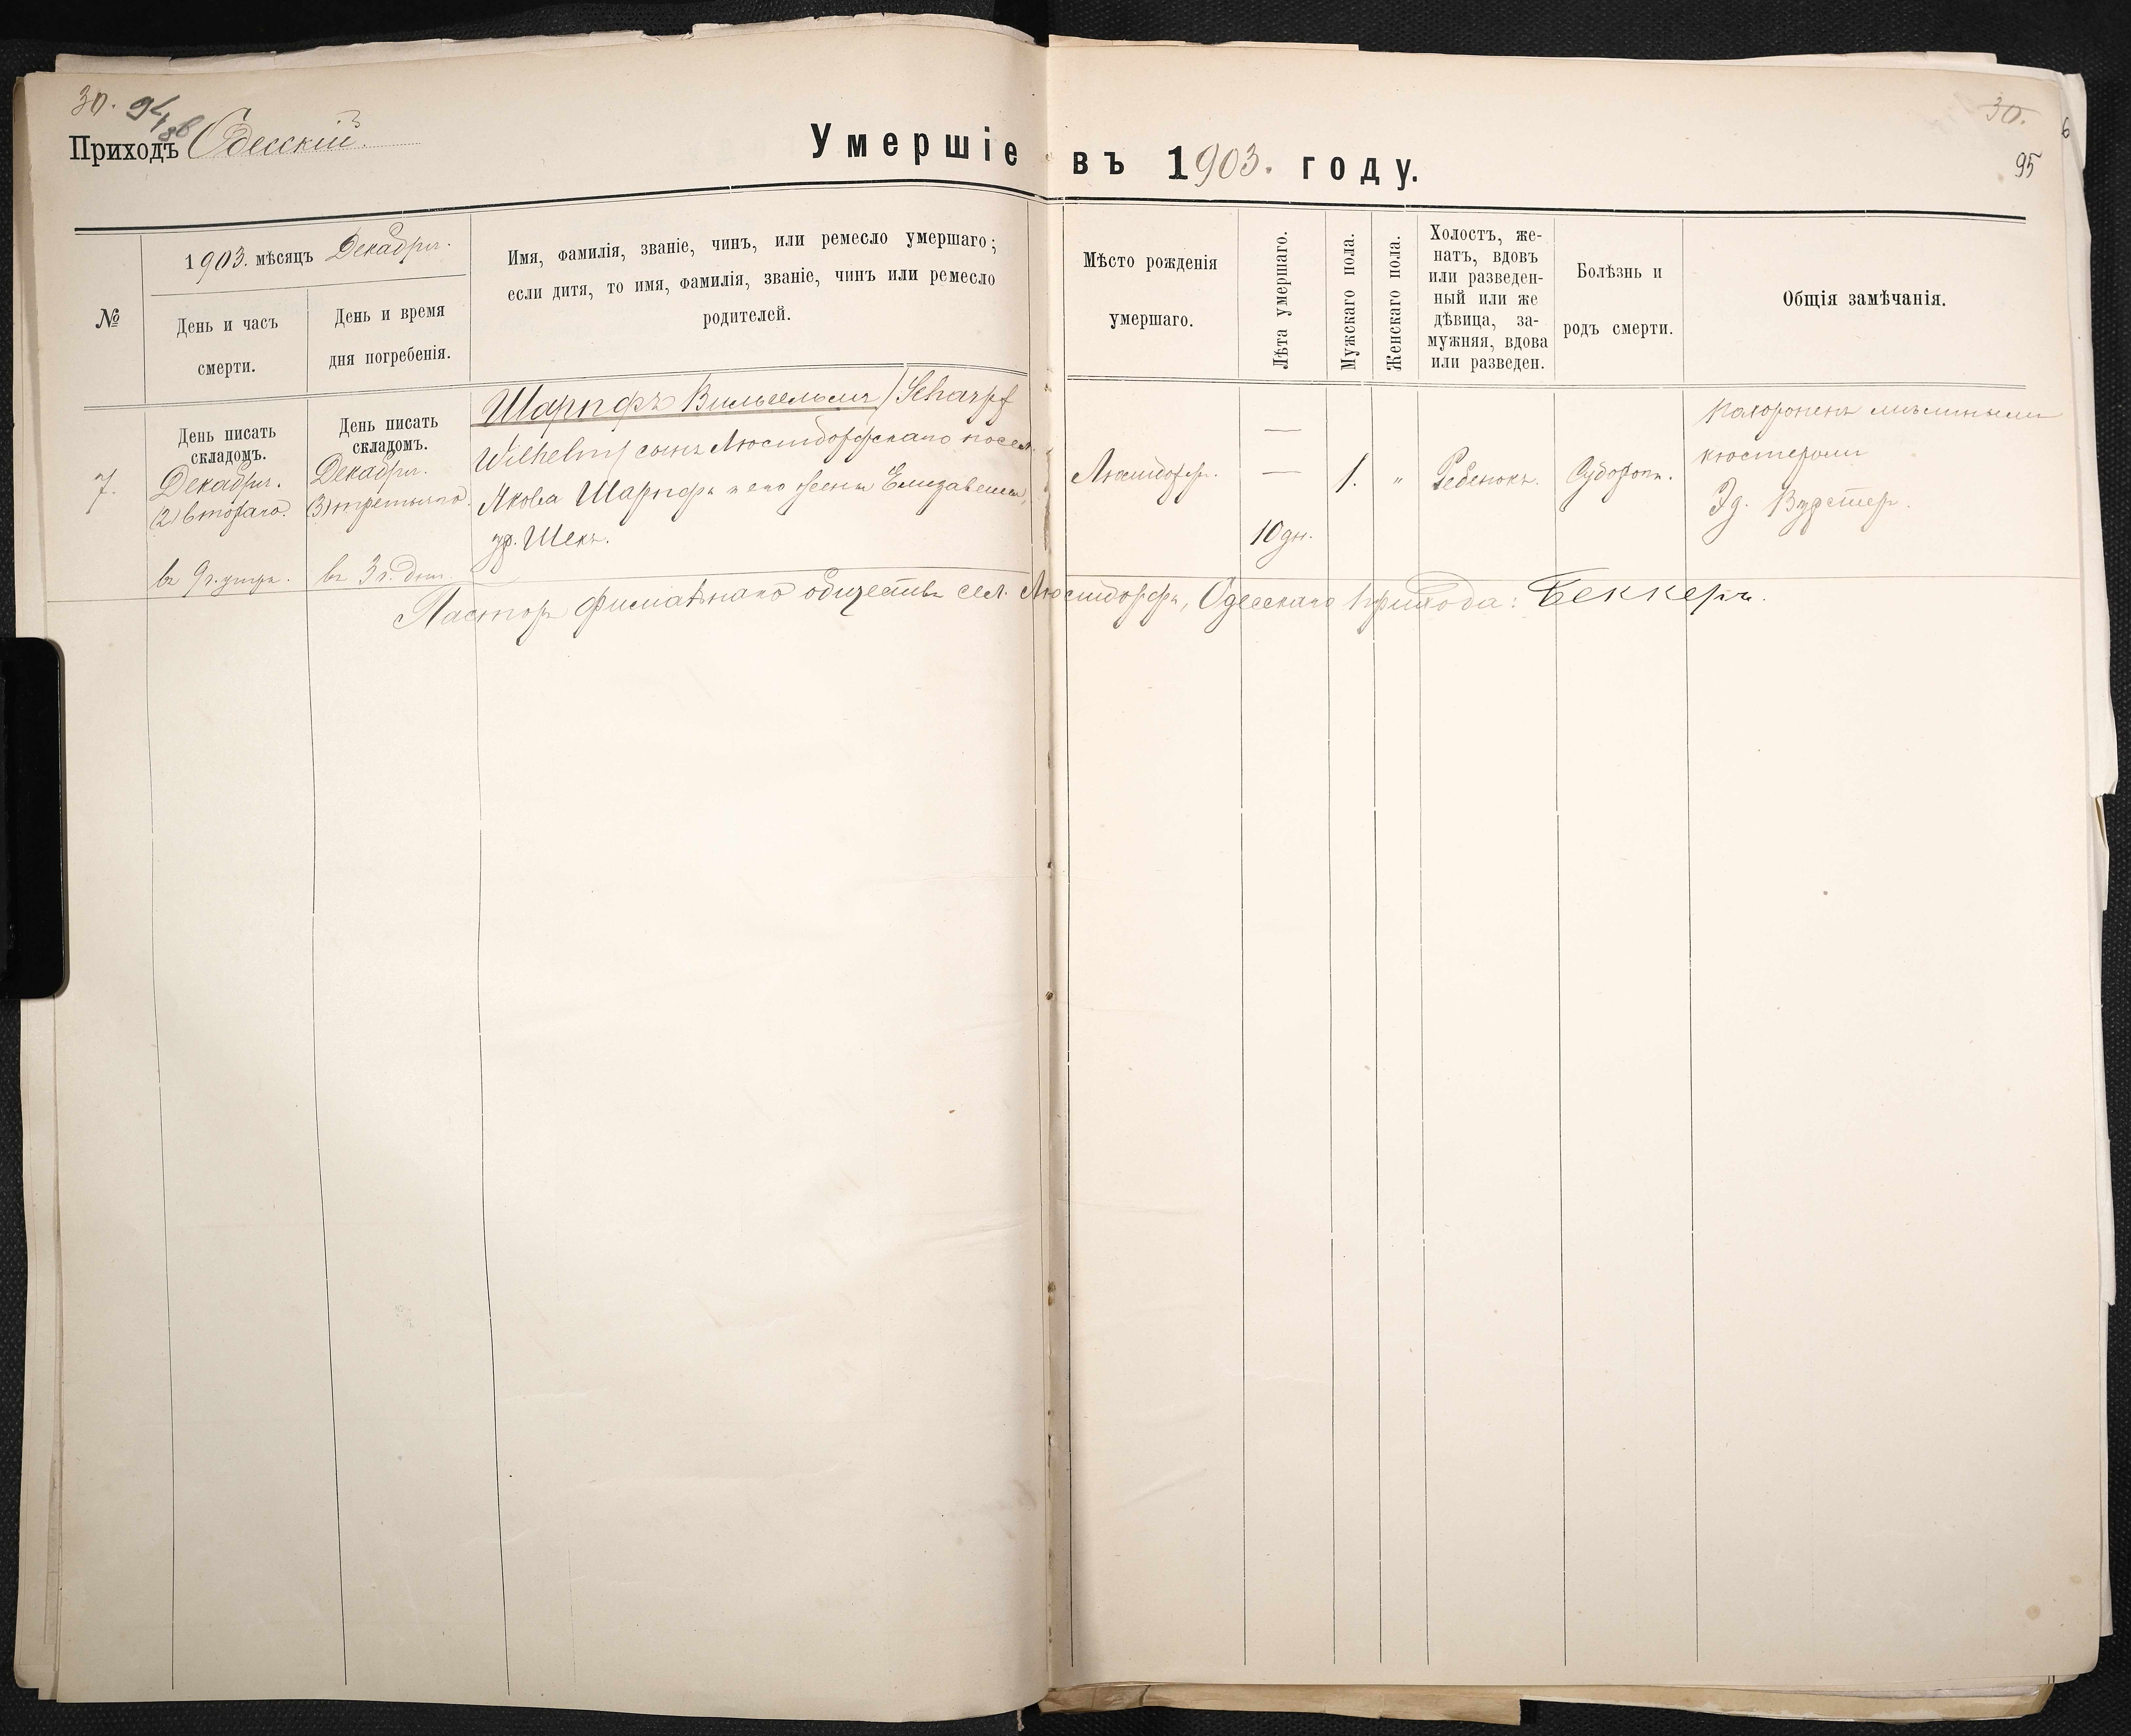 30.
Приходъ Одесскій.
Умершіе въ 1903. году.
30.
95
№
1903. мѣсяцъ Декабрь.
День и часъ
смерти.
День и время
дня погребенія.
Имя, фамилія, званіе, чинъ, или ремесло умершаго;
если дитя, то имя, фамилія, званіе, чинъ или ремесло
родителей.
Мѣсто рожденія
умершаго.
Лѣта умершаго.
Мужскаго пола.
Женскаго пола.
Холостъ, же-
натъ, вдовъ
или разведен-
ный или же
дѣвица, за-
мужняя, вдова
или разведен.
Болѣзнь и
родъ смерти.
Общія замѣчанія.
День писать
складомъ.
День писать
складомъ.
7.
Декабря.
(2) втораго.
въ 9 ч. утра.
Декабря.
(3) третьяго
въ 3 ч. дня.
Шарпфъ Вильгельмъ / Scharpf
Wilhelm / сынъ Люстдорфскаго посел.
Якова Шарпфъ и его жены Елизаветы,
ур. Шекъ.
Люстдорфъ.
— —
10 дн.
1.
"
Ребенокъ.
Судороги.
Похороненъ мѣстнымъ
кюстеромъ
Эд. Вурстер.
Пасторъ Филіальнаго общества сел. Люстдорфъ, Одесскаго прихода: Беккеръ.